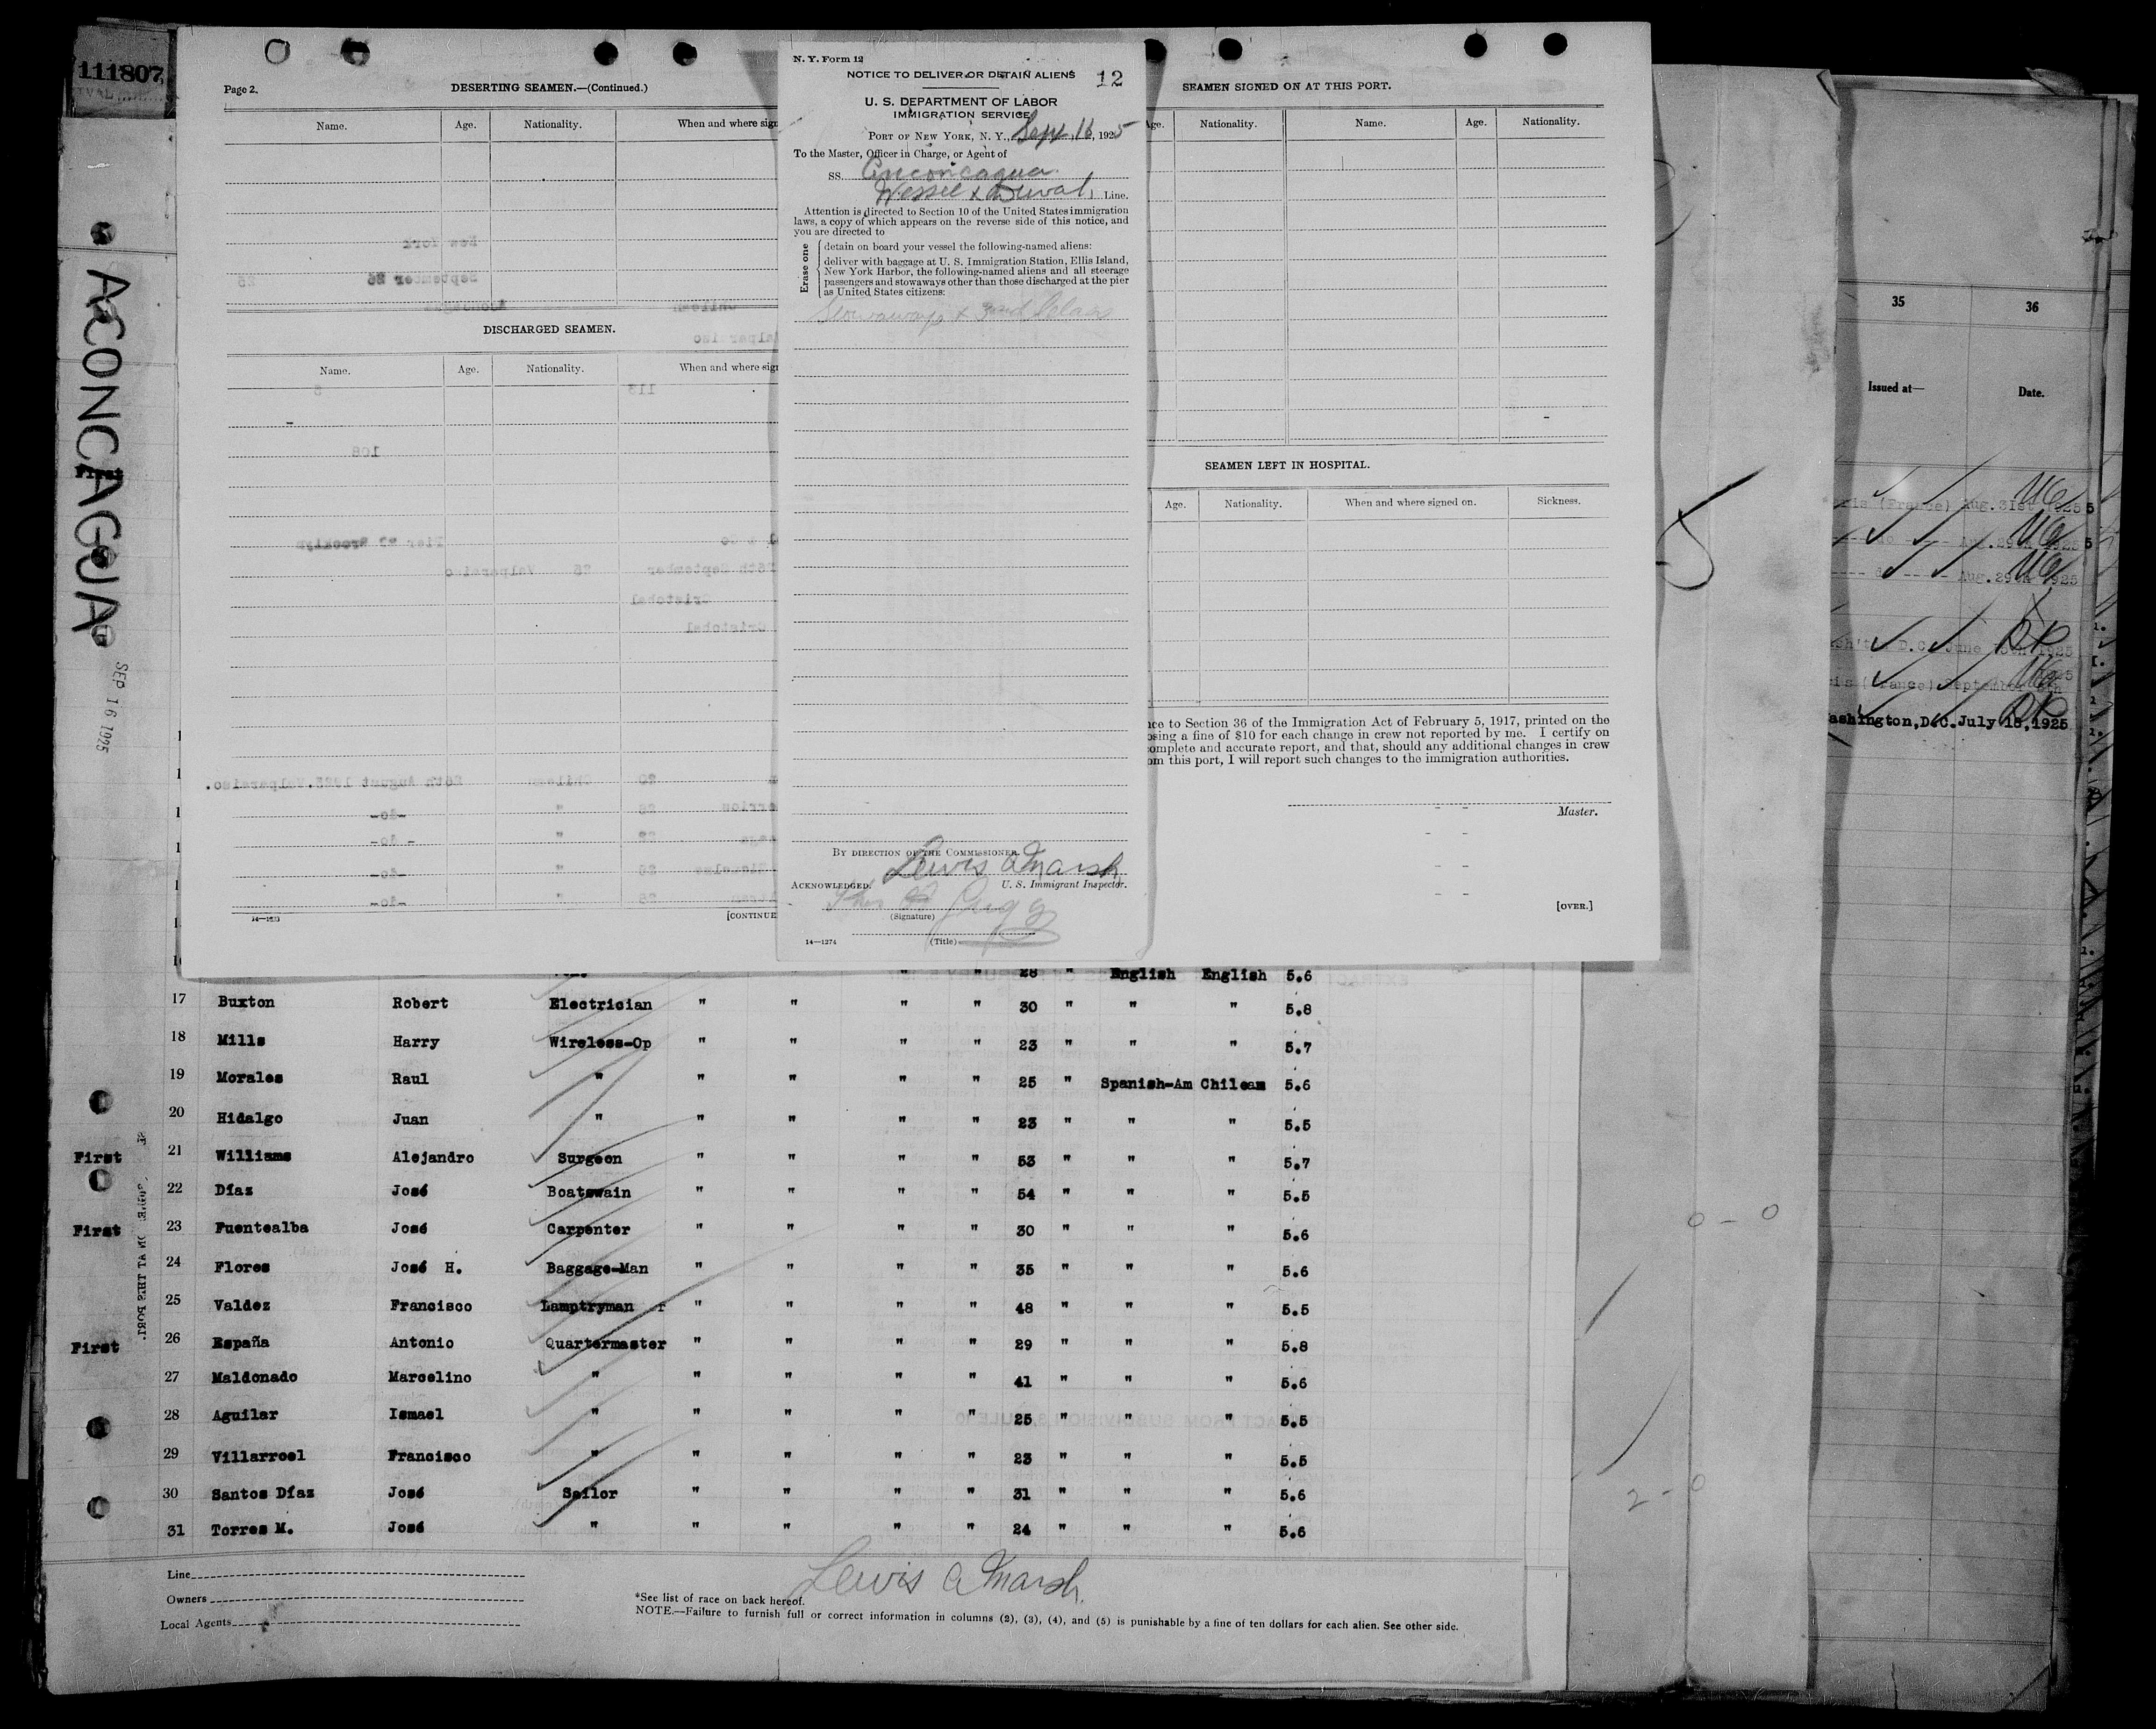 111807
ACONCAGUA
SEP 16 1925
Page 2.
DESERTING SEAMEN.—(Continued.)
Name. Age. Nationality. When and where sign
DISCHARGED SEAMEN.
Name. Age. Nationality. When and where sign
14—1233
[CONTINUE
N. Y. Form 12
NOTICE TO DELIVER OR DETAIN ALIENS
12
U. S. DEPARTMENT OF LABOR
IMMIGRATION SERVICE
PORT OF NEW YORK, N. Y., Sept 16, 1925
To the Master, Officer in Charge, or Agent of
SS. Aconcagua
Wessel & Duval, Line.
Attention is directed to Section 10 of the United States immigration
laws, a copy of which appears on the reverse side of this notice, and
you are directed to
Erase one
detain on board your vessel the following-named aliens:
deliver with baggage at U. S. Immigration Station, Ellis Island,
New York Harbor, the following-named aliens and all steerage
passengers and stowaways other than those discharged at the pier
as United States citizens:
Stowaways & 3rd Class
BY DIRECTION OF THE COMMISSIONER.
Lewis A Marsh
ACKNOWLEDGED. U. S. Immigrant Inspector.
(Signature)
(Title)
14—1274
SEAMEN SIGNED ON AT THIS PORT.
Age. Nationality. Name. Age. Nationality.
SEAMEN LEFT IN HOSPITAL.
Age. Nationality. When and where signed on. Sickness.
nce to Section 36 of the Immigration Act of February 5, 1917, printed on the
osing a fine of $10 for each change in crew not reported by me. I certify on
omplete and accurate report, and that, should any additional changes in crew
om this port, I will report such changes to the immigration authorities.
Master.
[OVER.]
35 36
Issued at— Date.
ris (France) Aug. 31st 1925
do Aug. 29th 1925
Aug. 29th 1925
D.C. June 1925
ashington, D.C. July 15, 1925
First
28 " English English 5.6
17 Buxton Robert Electrician " " " " 30 " " " 5.8
18 Mills Harry Wireless-Op " " " " 23 " " " 5.7
19 Morales Raul " " " " " 25 " Spanish-Am Chilean 5.6
20 Hidalgo Juan " " " " " 23 " " " 5.5
First 21 Williams Alejandro Surgeon " " " " 53 " " " 5.7
22 Díaz José Boatswain " " " " 54 " " " 5.5
First 23 Fuentealba José Carpenter " " " " 30 " " " 5.6
24 Flores José H. Baggage-Man " " " " 35 " " " 5.6
25 Valdez Francisco Lamptryman r " " " " 48 " " " 5.5
First 26 España Antonio Quartermaster " " " " 29 " " " 5.8
27 Maldonado Marcelino " " " " " 41 " " " 5.6
28 Aguilar Ismael " " " " " 25 " " " 5.5
29 Villarroel Francisco " " " " " 23 " " " 5.5
30 Santos Díaz José Sailor " " " " 31 " " " 5.6
31 Torres M. José " " " " " 24 " " " 5.6
Line
Owners
Local Agents
Lewis A Marsh.
*See list of race on back hereof.
NOTE.—Failure to furnish full or correct information in columns (2), (3), (4), and (5) is punishable by a fine of ten dollars for each alien. See other side.
0 - 0
2 - 0